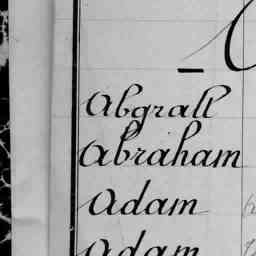 Abgrall
Abraham
Adam
Adam